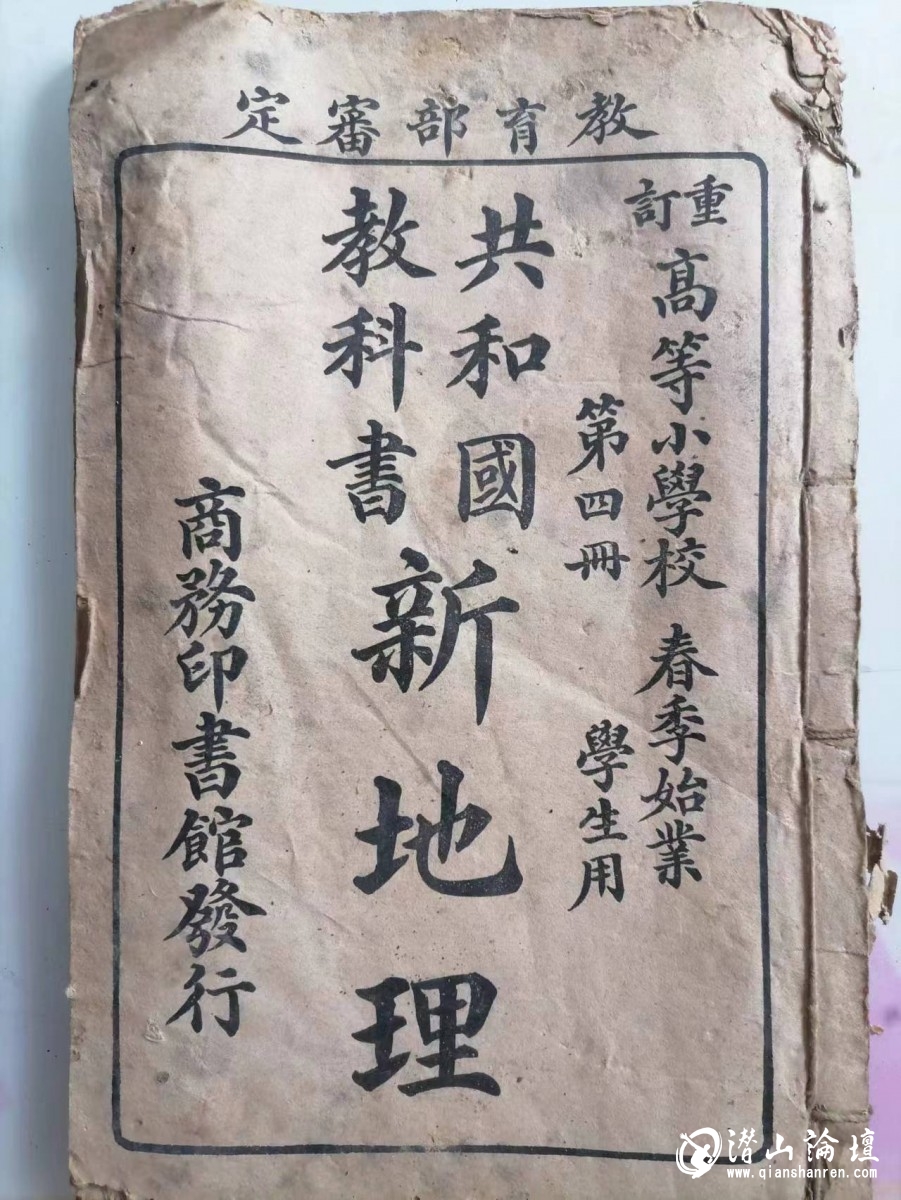 教育部審定
重訂
高等小學校 春季始業
第四冊 學生用
共和國
教科書
新地理
商務印書館發行
潜山論壇
www.qianshanren.com